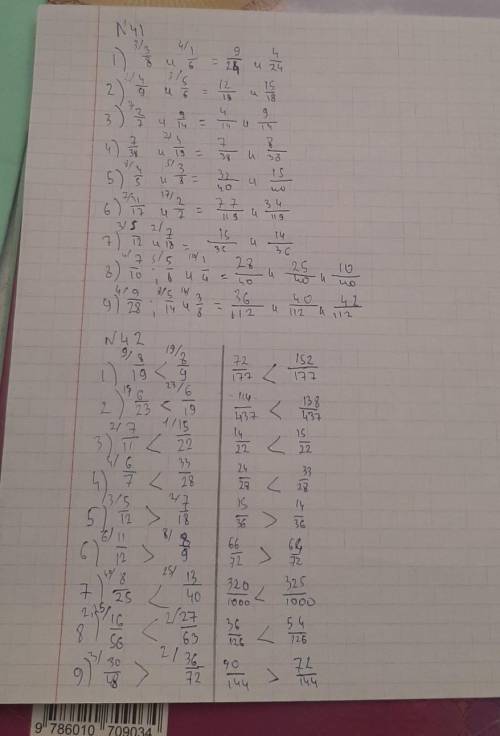 N41
1) 3/ 3/8 и 4/ 1/6 = 9/24 и 4/24
2) 2/ 4/9 и 3/ 5/6 = 12/18 и 15/18
3) 2/ 2/7 и 9/14 = 4/14 и 9/14
4) 7/38 и 2/ 4/19 = 7/38 и 8/38
5) 8/ 4/5 и 5/ 3/8 = 32/40 и 15/40
6) 7/ 11/17 и 17/ 2/7 = 77/119 и 34/119
7) 3/ 5/12 и 2/ 7/18 = 15/36 и 14/36
8) 4/ 7/10 ; 5/ 5/8 и 10/ 1/4 = 28/40 и 25/40 и 10/40
9) 4/ 9/28 ; 8/ 5/14 и 14/ 3/8 = 36/112 и 40/112 и 42/112
N42
1) 9/ 8/19 < 19/ 8/9 72/177 < 152/177
2) 19/ 6/23 < 23/ 6/19 114/437 < 138/437
3) 2/ 7/11 < 1/ 15/22 14/22 < 15/22
4) 4/ 6/7 < 33/28 24/28 < 33/28
5) 3/ 5/12 > 2/ 7/18 15/36 > 14/36
6) 6/ 11/12 > 8/ 8/9 66/72 > 64/72
7) 40/ 8/25 < 25/ 13/40 320/1000 < 325/1000
8) 2,25/ 16/56 < 2/ 27/63 36/126 < 54/126
9) 3/ 30/48 > 2/ 36/72 90/144 > 72/144
9 786010 709034